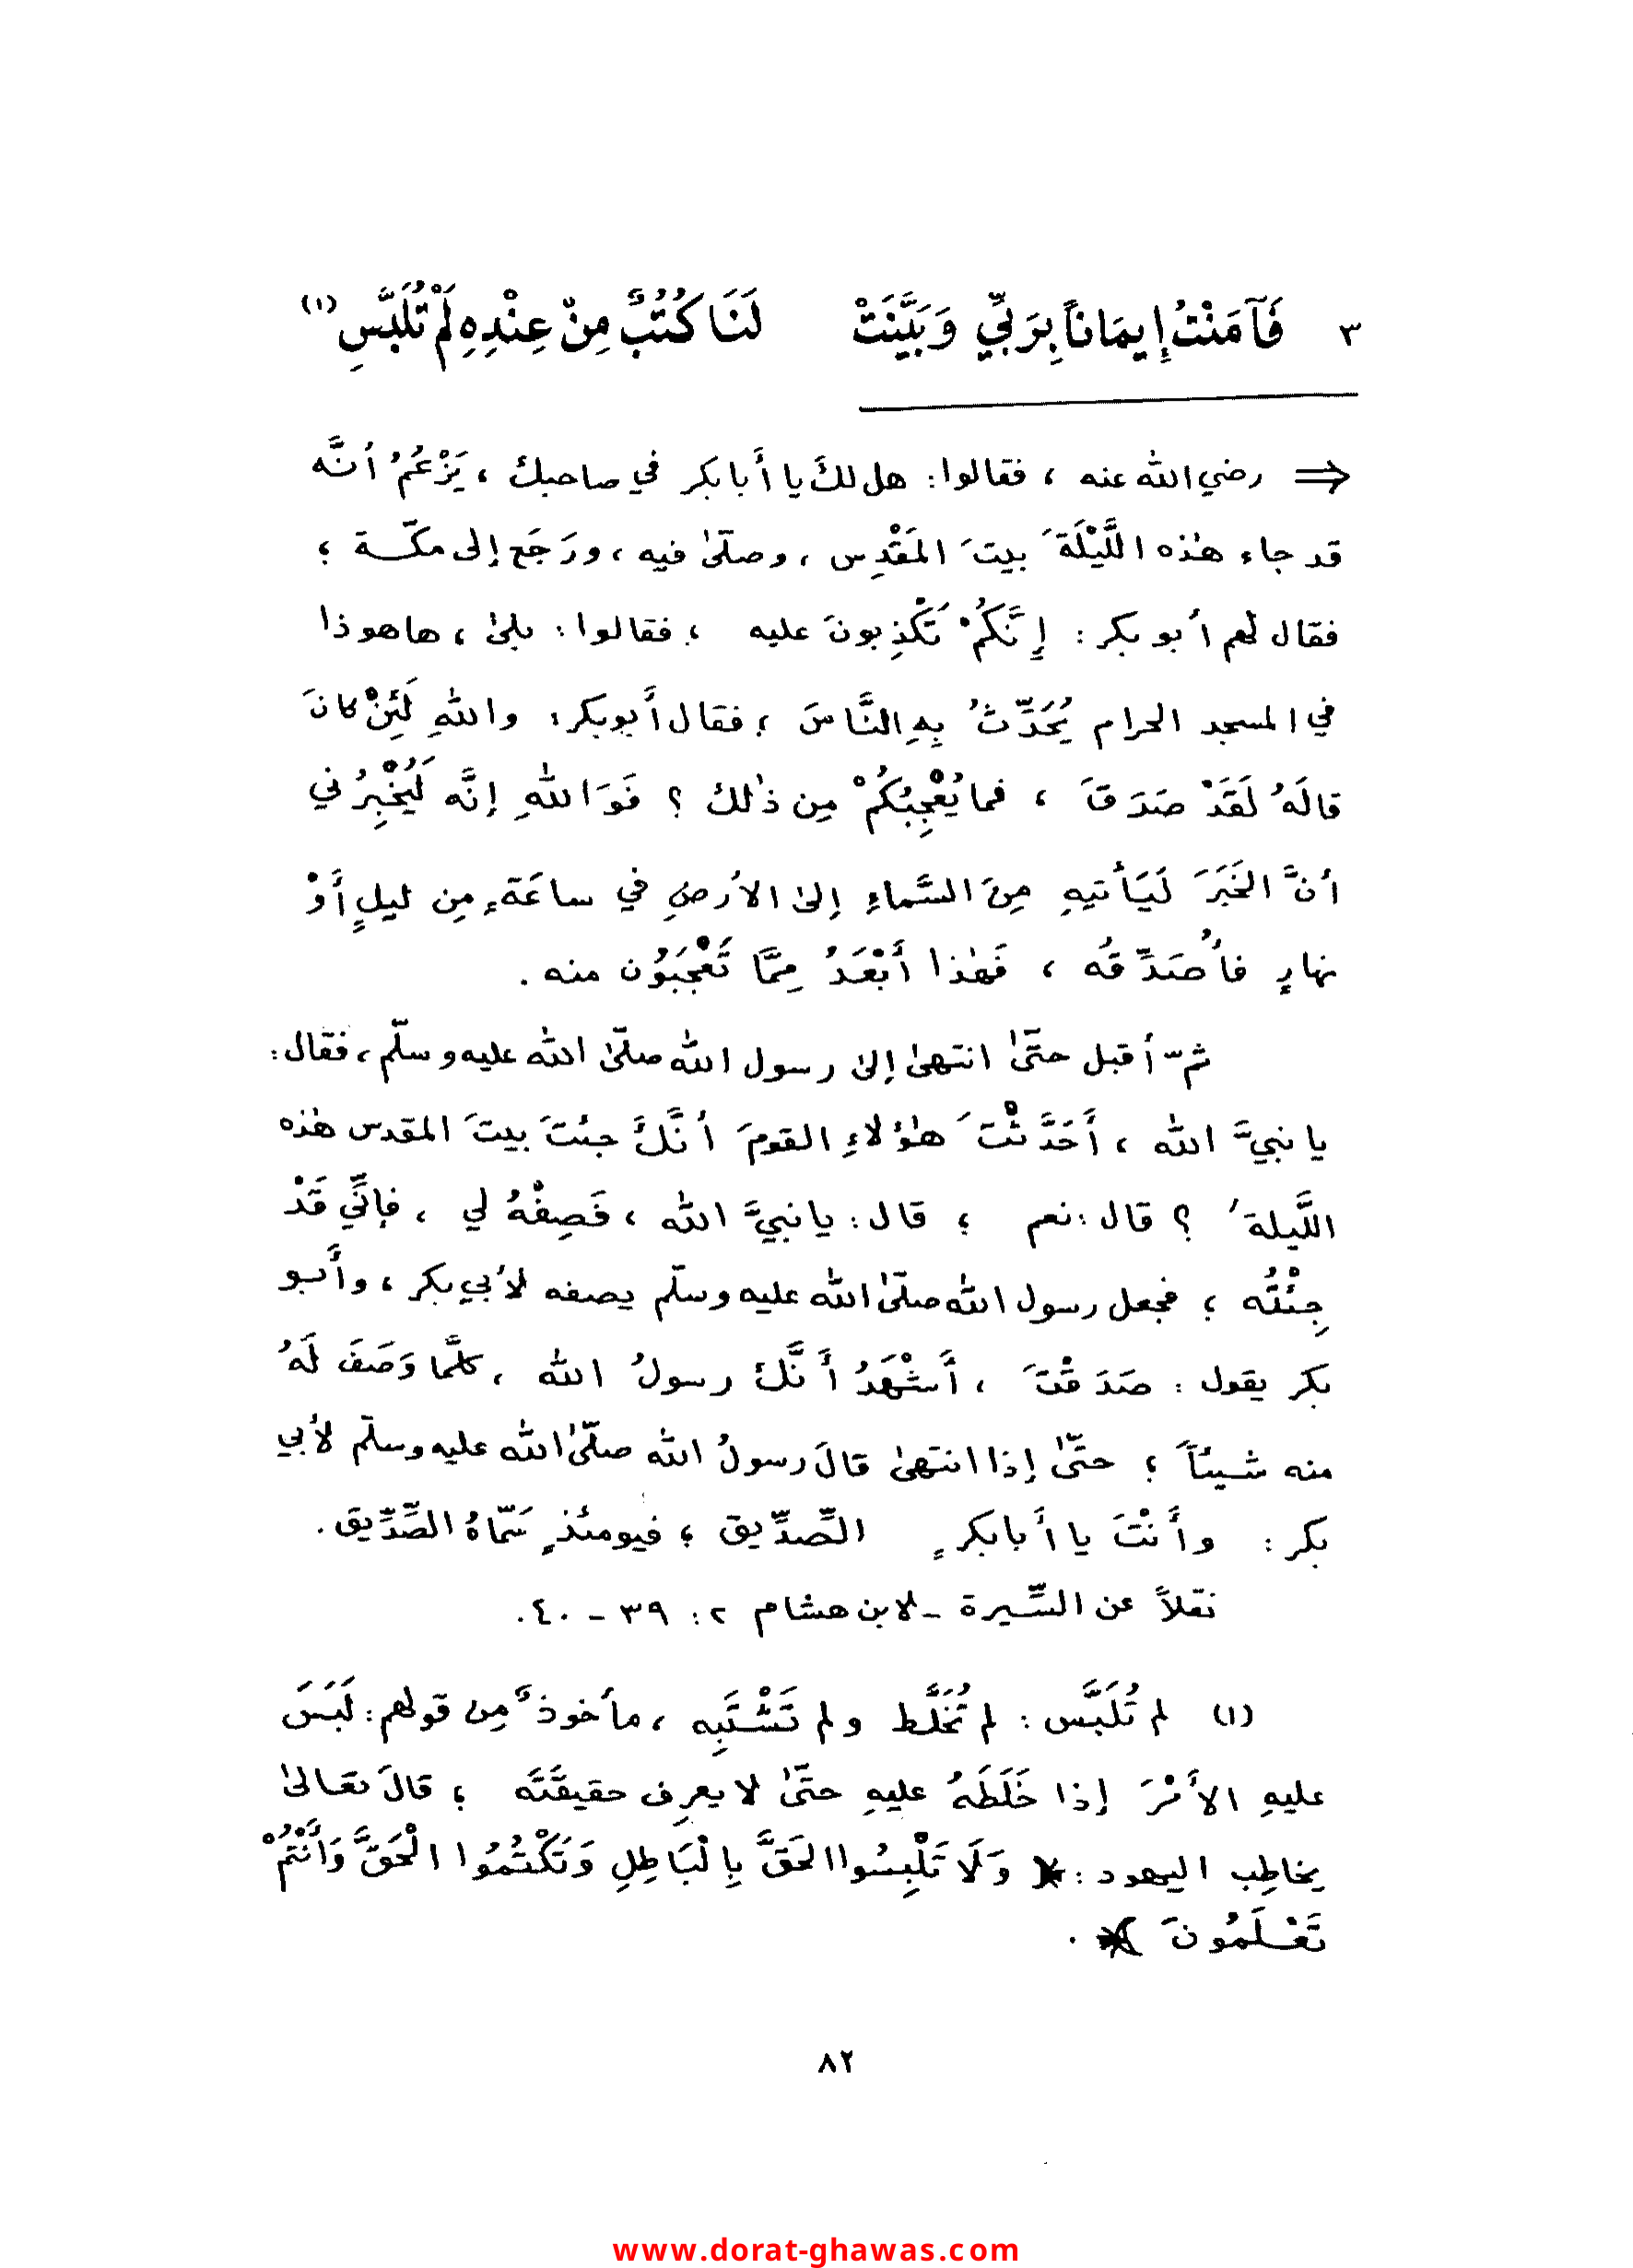 ٣ فَآمَنْتُ إِيمَاناً بِرَبِّي وَبَيَّنَتْ لَنَا كُتُبٌ مِنْ عِنْدِهِ لَمْ تُلَبَّسِ (١)
⇐ رضي الله عنه ، فقالوا : هل لكَ يا أَبا بكر في صاحبك ، يَزْعُمُ أنَّه
قد جاء هٰذه اللَّيْلَةَ بيتَ المَقْدِس ، وصلّىٰ فيه ، ورَجَع إلى مكّـة ؛
فقال لهم أبو بكر : إِنَّكُمْ تَكْذِبونَ عليه ؛ فقالوا : بلىٰ ، ها هو ذا
في المسجد الحرام يُحَدِّثُ بِهِ النَّاسَ ؛ فقال أَبو بكر : واللهِ لَئِنْ كانَ
قالَهُ لَقَدْ صَدَقَ ، فما يُعْجِبُكُمْ مِن ذٰلك ؟ فَوَاللهِ إنَّه لَيُخْبِرُني
أنَّ الخَبَرَ لَيَأتيهِ مِنَ السَّماءِ إلىٰ الأرضِ في ساعَةٍ مِن ليلٍ أَوْ
نهارٍ فأُصَدِّقُه ، فَهٰذا أَبْعَدُ مِمَّا تَعْجَبُون منه .
ثمّ أقبل حتّىٰ انتهىٰ إلىٰ رسول الله صلّىٰ الله عليه وسلّم ، فقال :
يا نبيَّ الله ، أَحَدَّثْتَ هٰؤلاءِ القومَ أنَّكَ جئتَ بيتَ المقدس هٰذه
اللَّيلةَ ؟ قال : نعم ؛ قال : يا نبيَّ الله ، فَصِفْهُ لي ، فإنِّي قَدْ
جِئْتُه ؛ فجعل رسول الله صلّىٰ الله عليه وسلّم يصفه لأبي بكر ، وأَبـو
بكر يقول : صَدَقْتَ ، أَشْهَدُ أَنَّكَ رسولُ الله ، كلَّما وَصَفَ لَهُ
منه شـيئاً ؛ حتّىٰ إذا انتهىٰ قالَ رسولُ الله صلّىٰ الله عليه وسلّم لأبي
بكر : وأَنْتَ يا أَبا بكرٍ الصِّدِّيق ؛ فيومئذٍ سَمّاهُ الصِّدِّيق .
نقلاً عن السِّـيرة ـ لابن هشام ٢ : ٣٩ - ٤٠ .
(١) لم تُلَبَّس : لم تُخَلَّط ولم تَشْتَبِه ، مأخوذٌ مِن قولهم : لَبَسَ
عليهِ الأَمْرَ إذا خَلَطَهُ عليهِ حتّىٰ لا يعرِف حقيقَتَه ؛ قالَ تعَالىٰ
يخاطِب اليهود : ﴿ وَلَا تَلْبِسُوا الحَقَّ بِالْبَاطِلِ وَتَكْتُمُوا الْحَقَّ وَأَنْتُمْ
تَعْـلَمُونَ ﴾ .
٨٢
www.dorat-ghawas.com